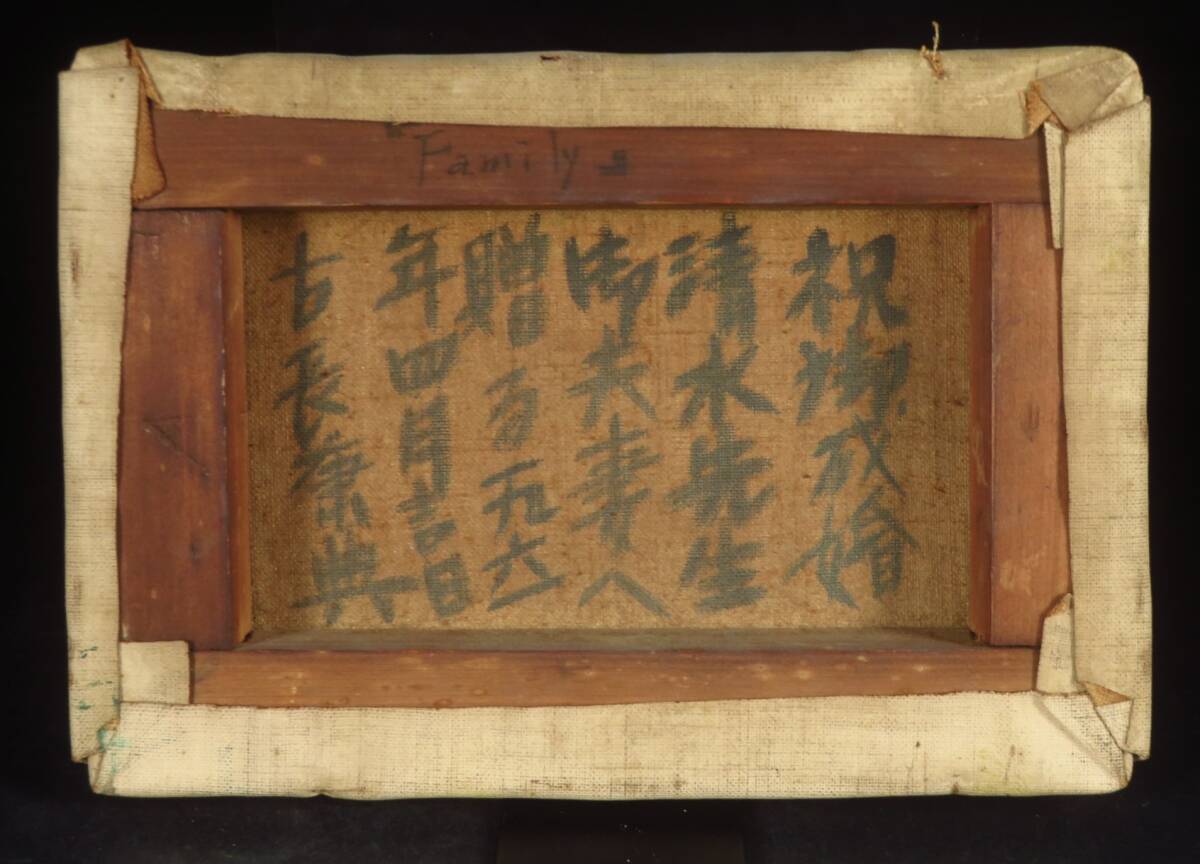 "Family"
祝御成婚
清水先生
御夫妻へ
贈 九六
年四月吉日
古長康典